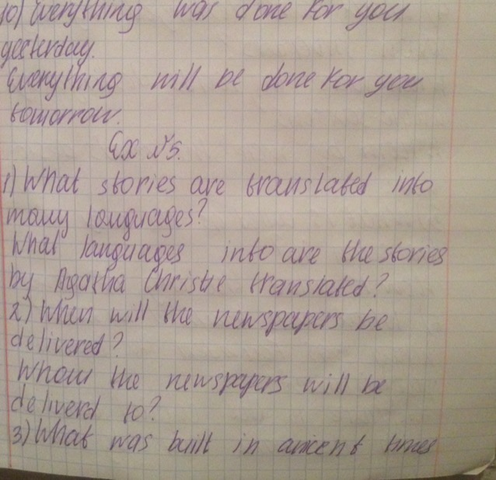 10) Everything was done for you
yesterday.
Everything will be done for you
tomorrow.
Ex №5.
1) What stories are translated into
many languages?
What languages into are the stories
by Agatha Christie translated?
2) When will the newspapers be
delivered?
Whom the newspapers will be
deliverd to?
3) What was built in ancient times